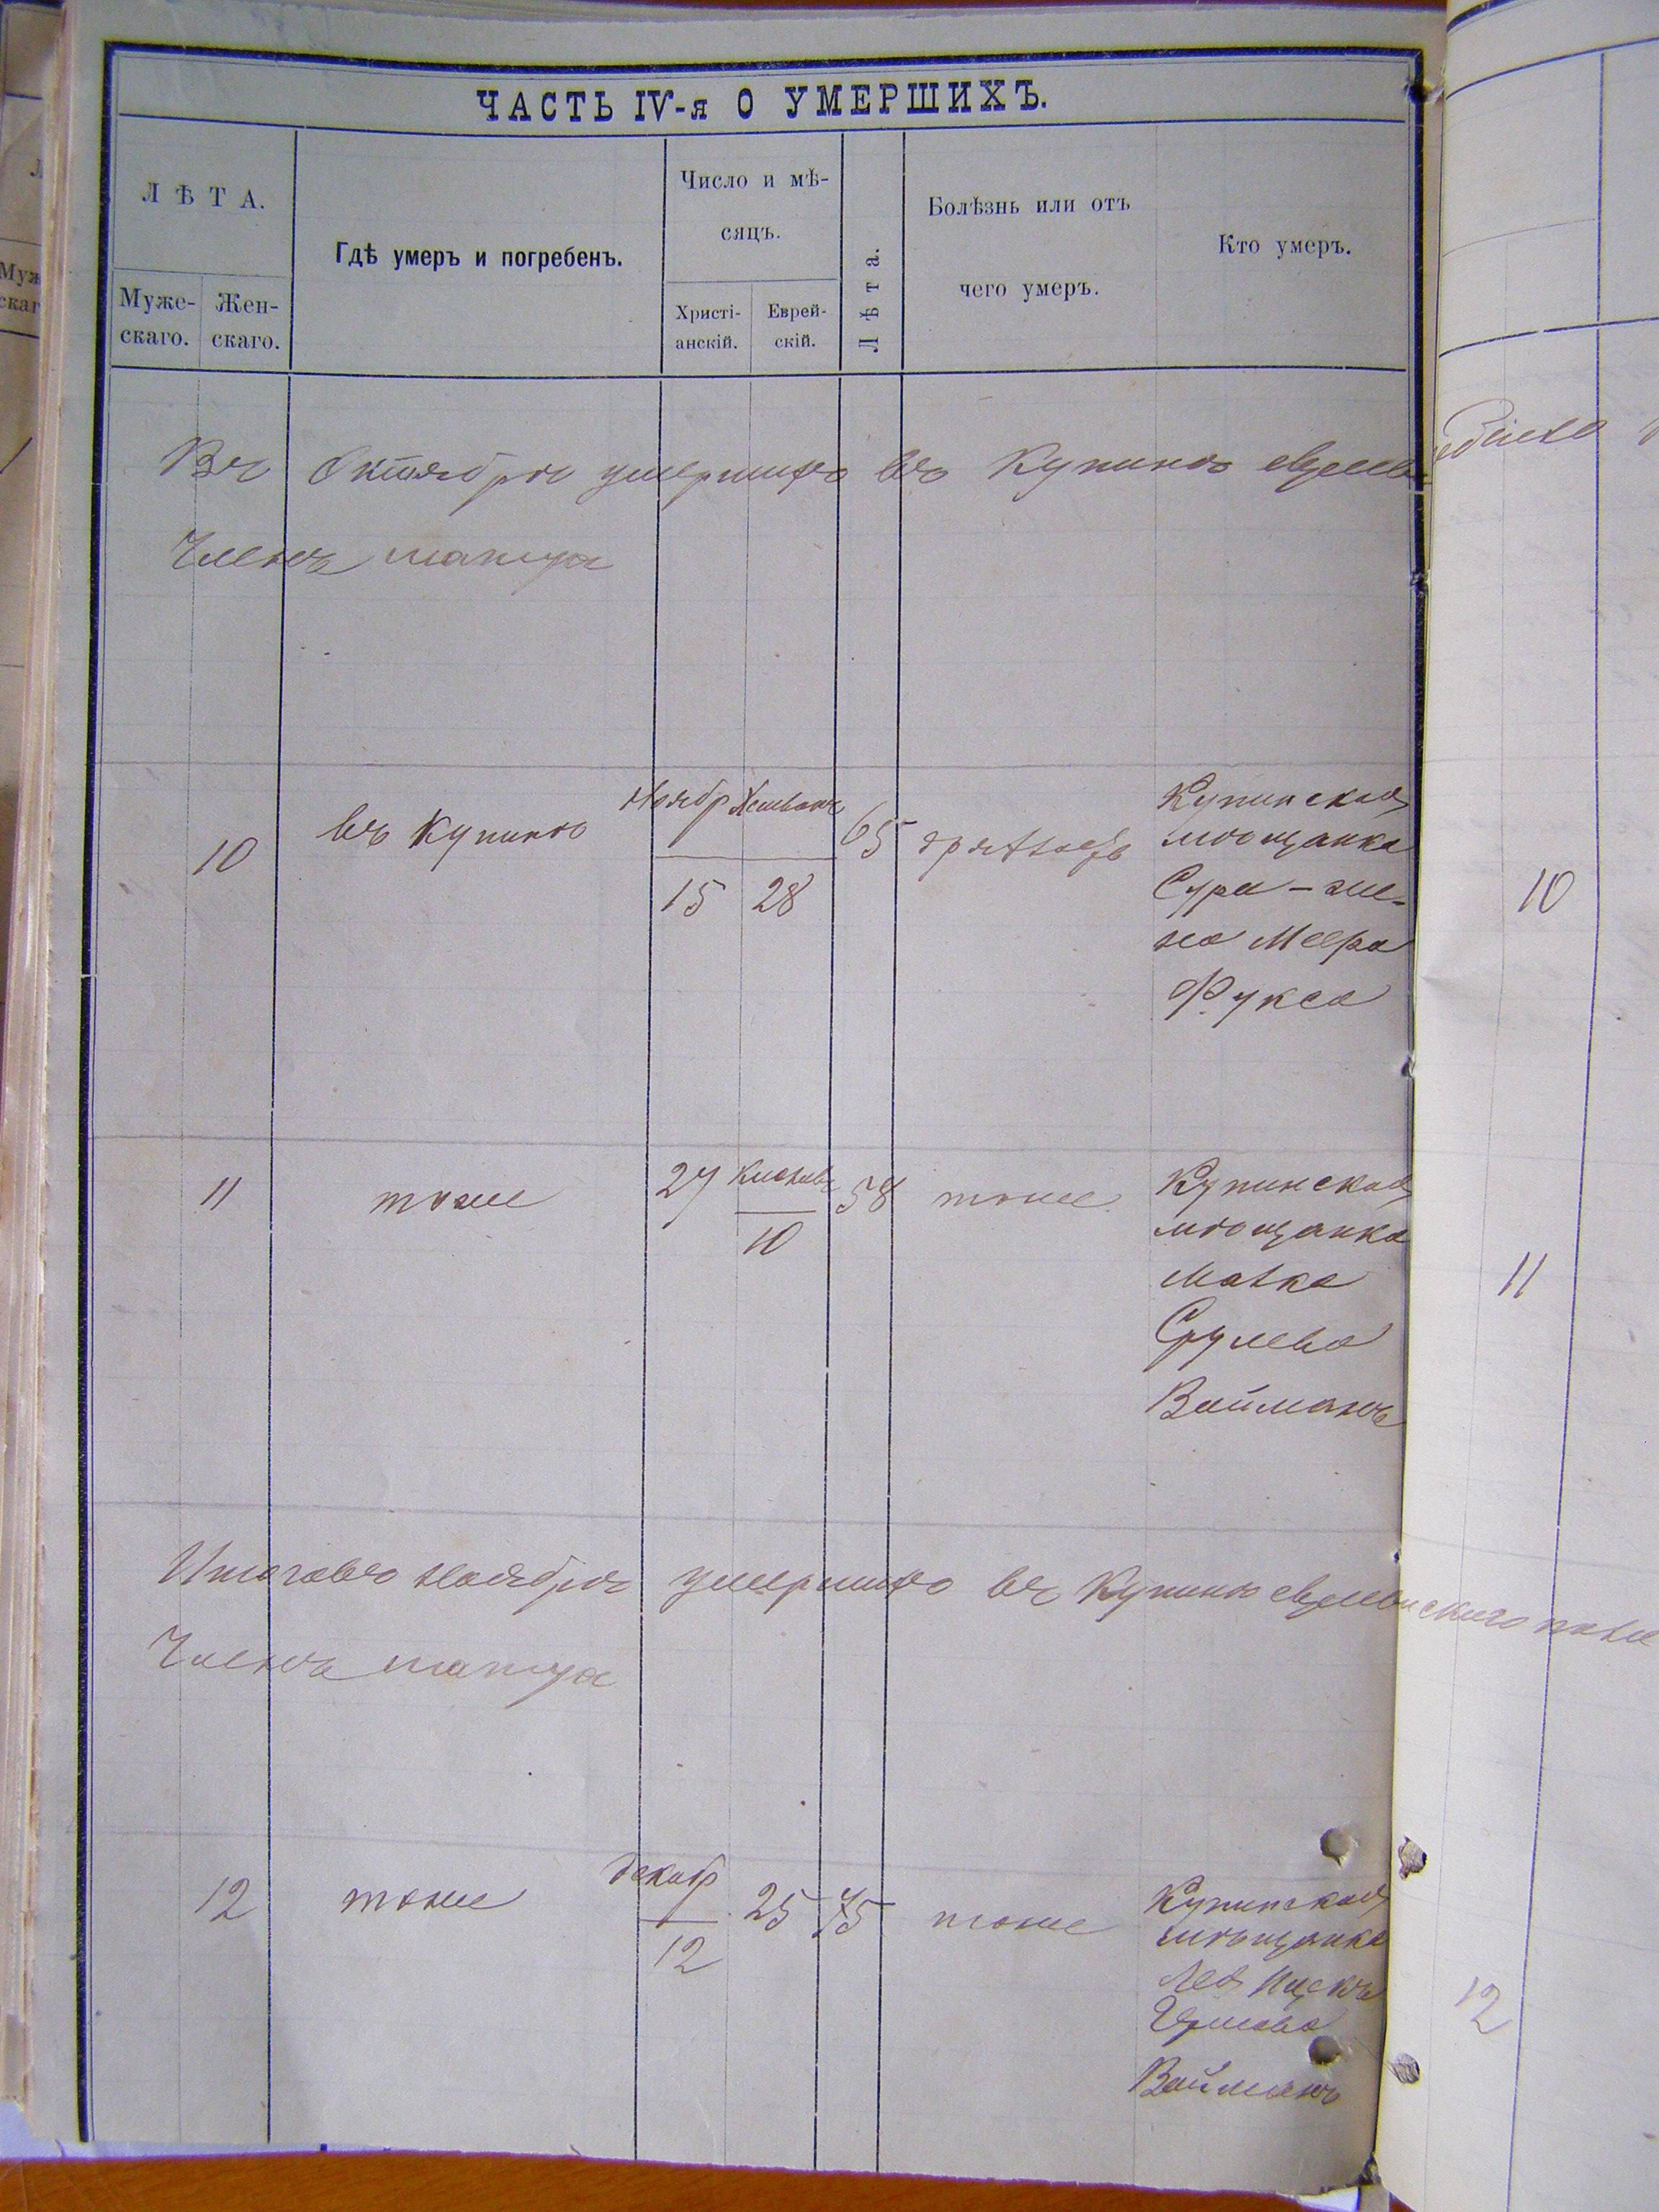 ЧАСТЬ IV-я О УМЕРШИХЪ.
ЛѢТА.
Муже-
скаго.
Жен-
скаго.
Гдѣ умеръ и погребенъ.
Число и мѣ-
сяцъ.
Христі-
анскій.
Еврей-
скій.
Лѣта.
Болѣзнь или отъ
чего умеръ.
Кто умеръ.
Въ Октябрѣ умершихъ въ Купинѣ
Членъ
10
въ Купинѣ
Ноябр
15
Хешванъ
28
65
Купинская
мѣщанка
Сура - же-
на Меера
Фукса
10
11
тоже
27
Кислевъ
10
58
тоже
Купинская
мѣщанка
Малка
Срулева
Вайманъ
11
Итого въ Ноябрѣ умершихъ въ Купинѣ еврейскаго пола
Членъ
12
тоже
Декабр
12
25
75
тоже
Купинская
мѣщанка
Вайманъ
12